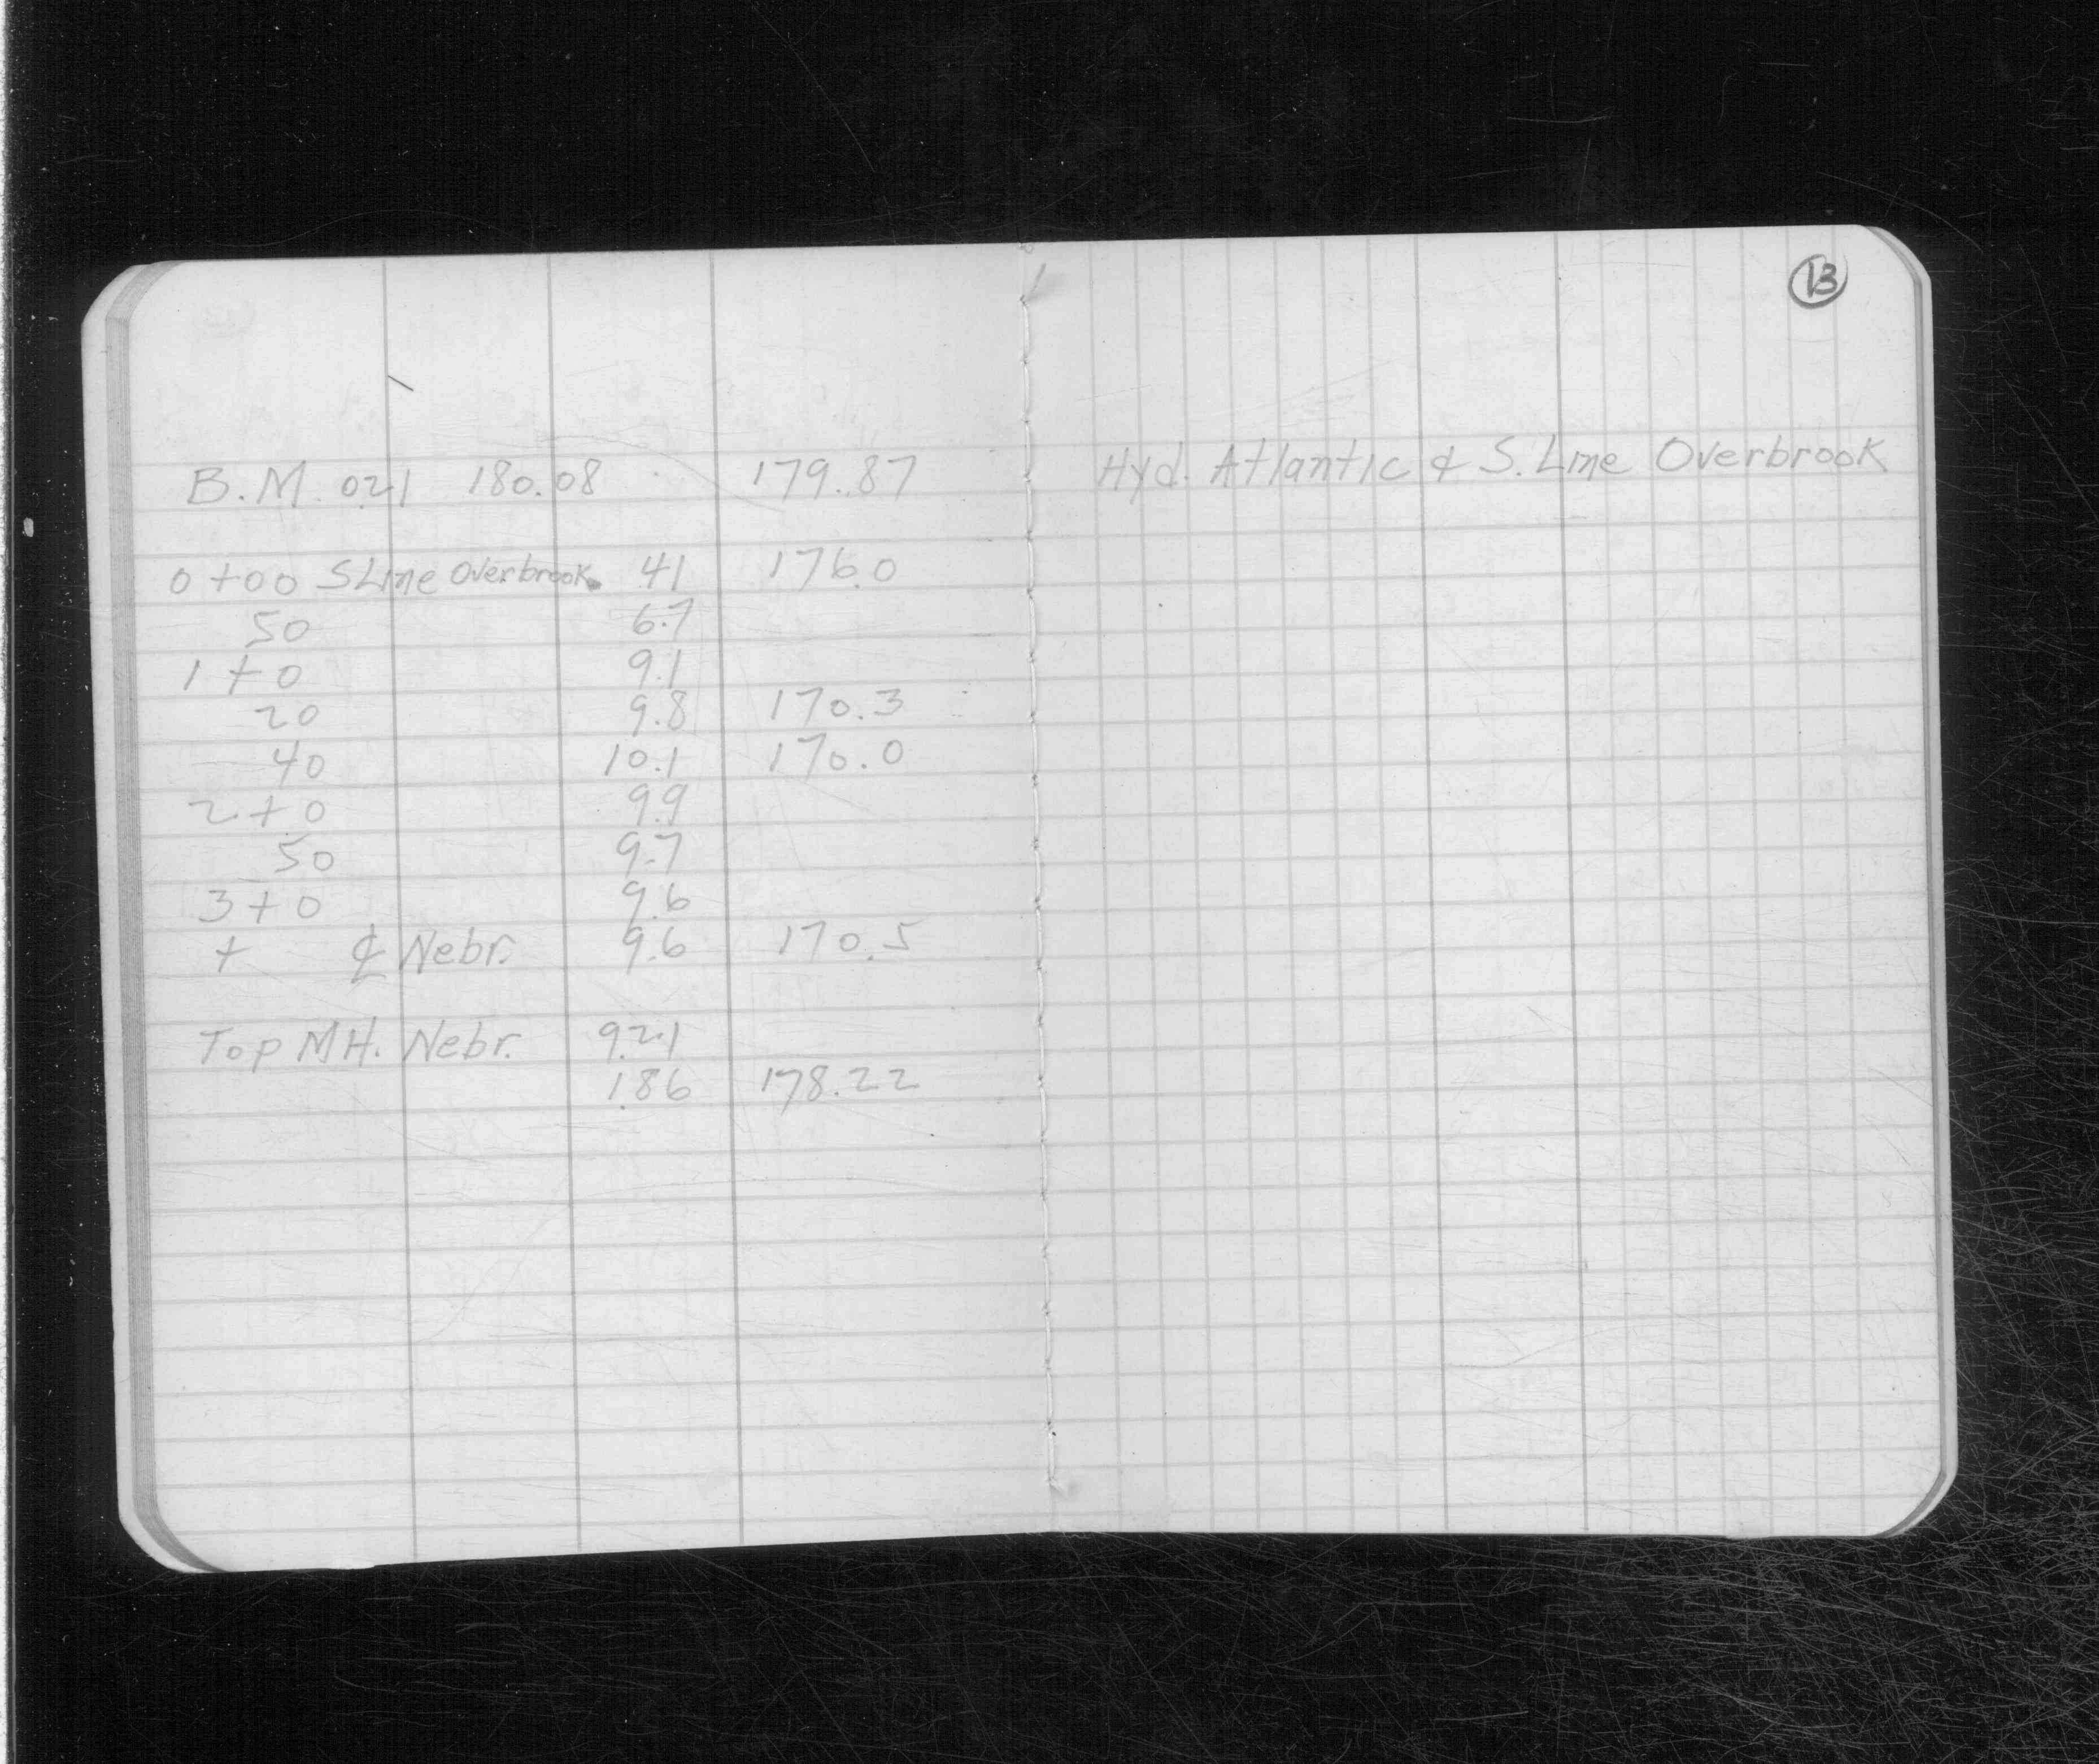 13
B.M. 0.21 180.08 179.87 Hyd. Atlantic & S. Line Overbrook
0+00 S Line Overbrook 41 176.0
50 6.7
1+0 9.1
20 9.8 170.3
40 10.1 170.0
2+0 9.9
50 9.7
3+0 9.6
+ ℄ Nebr. 9.6 170.5
Top MH. Nebr. 9.21
1.86 178.22